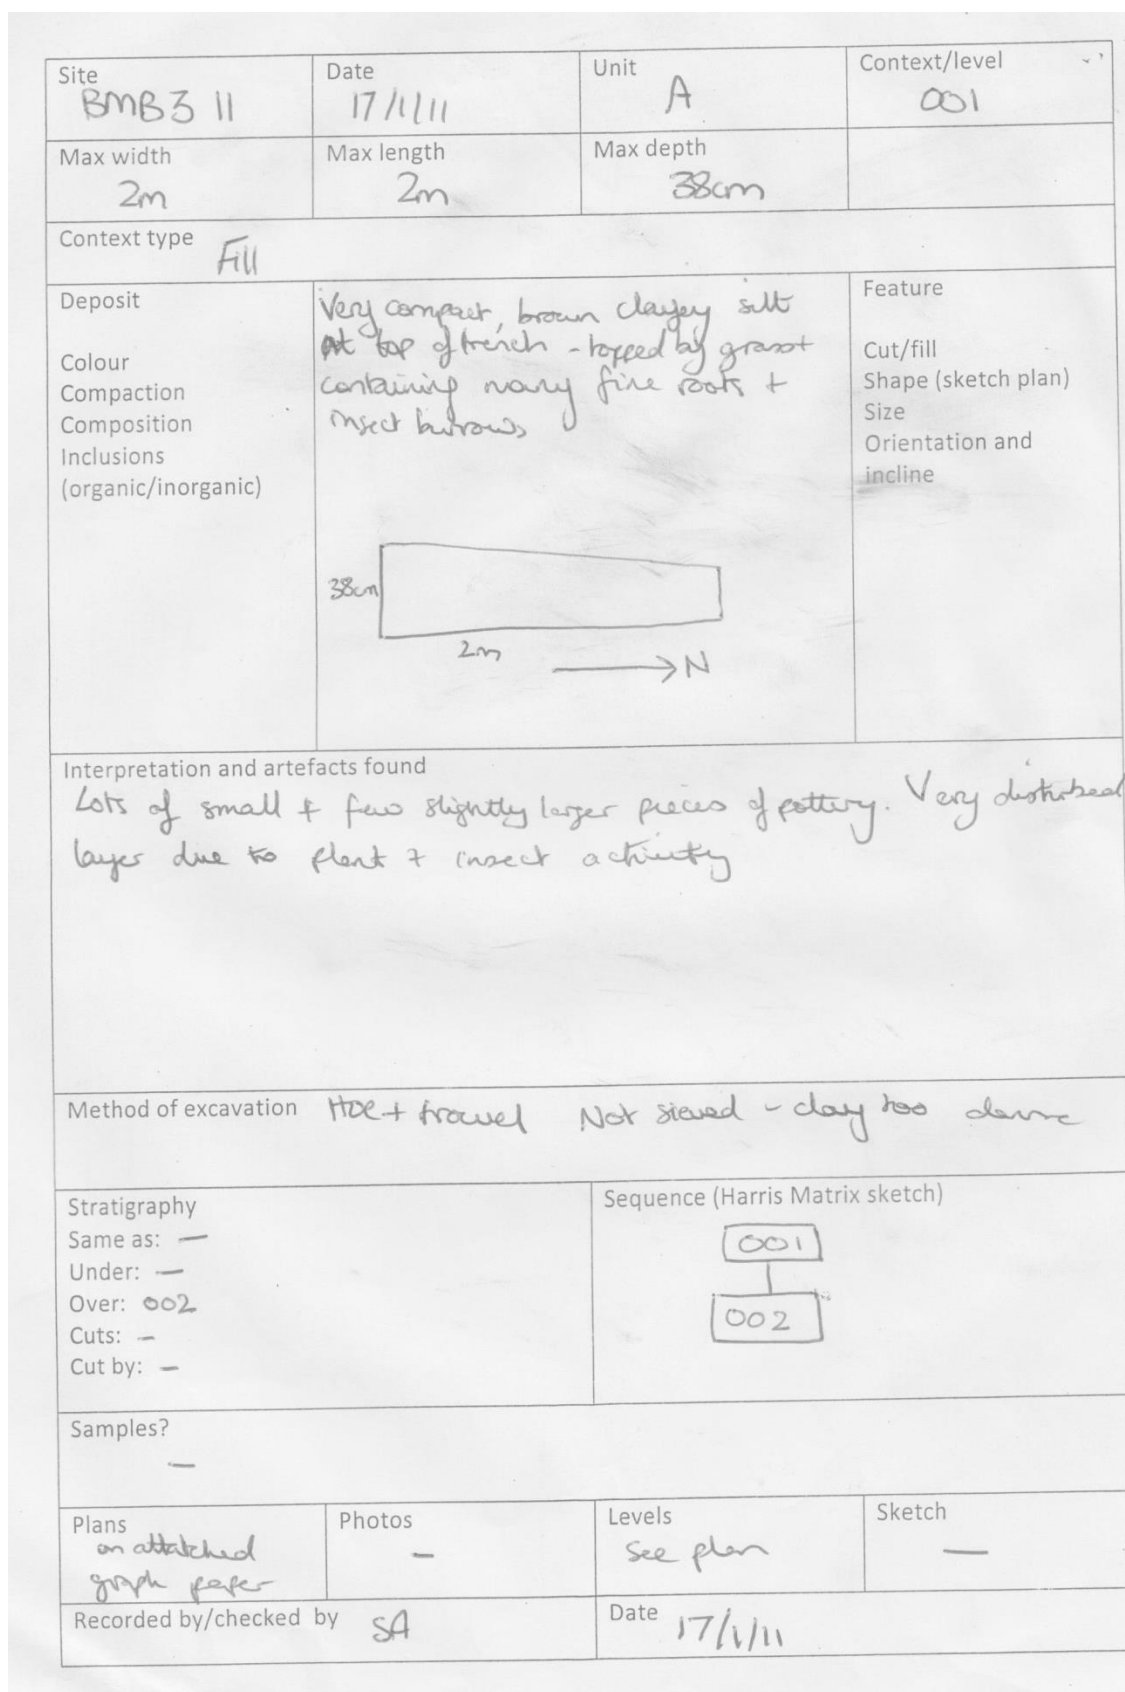 Site
BMB3 11
Date
17/1/11
Unit
A
Context/level
001
Max width
2m
Max length
2m
Max depth
38cm
Context type Fill
Deposit
Colour
Compaction
Composition
Inclusions
(organic/inorganic)
Very compact, brown clayey silt
At top of trench - topped by grass +
containing many fine roots +
insect burrows
38cm
2m
N
Feature
Cut/fill
Shape (sketch plan)
Size
Orientation and
incline
Interpretation and artefacts found
Lots of small + few slightly larger pieces of pottery. Very disturbed
layer due to plant + insect activity
Method of excavation Hoe + trowel Not sieved - clay too dense
Stratigraphy
Same as: —
Under: —
Over: 002
Cuts: —
Cut by: —
Sequence (Harris Matrix sketch)
001
002
Samples?
—
Plans
on attatched
graph paper
Photos
—
Levels
See plan
Sketch
—
Recorded by/checked by SA
Date 17/1/11